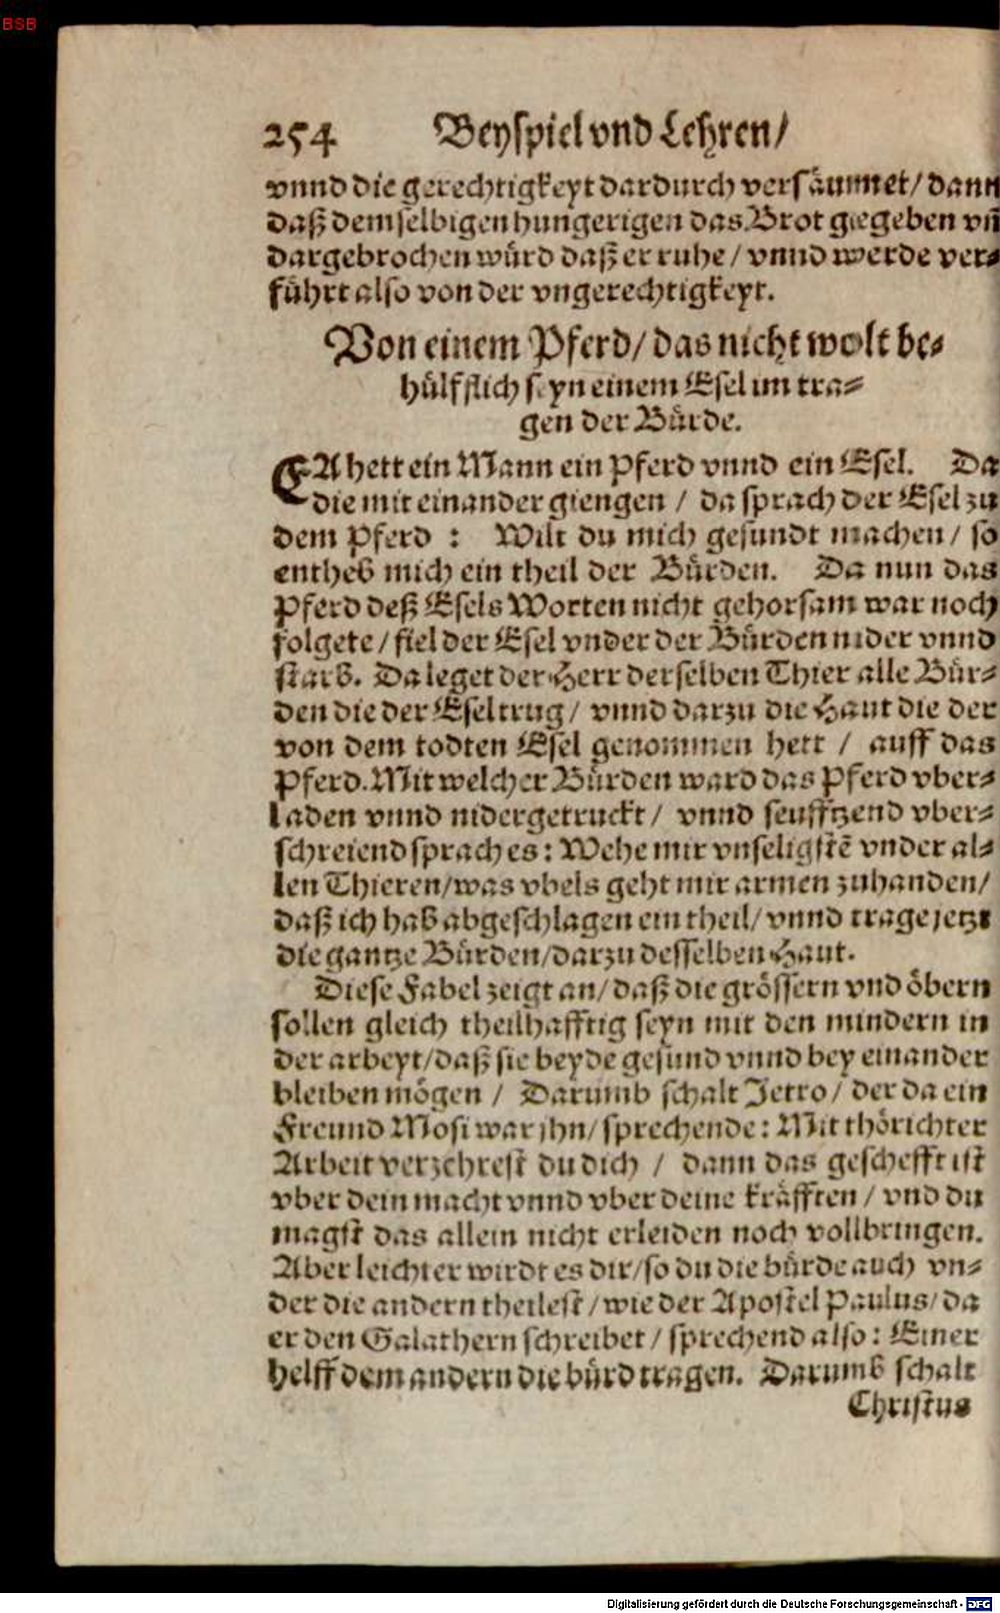 BSB
254 Beyspiel vnd Lehren/
vnnd die gerechtigkeyt dardurch versäumet/ dann
daß demselbigen hungerigen das Brot gegeben vñ
dargebrochen würd daß er ruhe / vnnd werde ver-
führt also von der vngerechtigkeyt.
Von einem Pferd/ das nicht wolt be-
hülfflich seyn einem Esel im tra-
gen der Bürde.
ES hett ein Mann ein Pferd vnnd ein Esel. Da
die mit einander giengen / da sprach der Esel zu
dem Pferd : Wilt du mich gesundt machen / so
entheb mich ein theil der Bürden. Da nun das
Pferd deß Esels Worten nicht gehorsam war noch
folgete / fiel der Esel vnder der Bürden nider vnnd
starb. Da leget der Herr derselben Thier alle Bür-
den die der Esel trug / vnnd darzu die Haut die der
von dem todten Esel genommen hett / auff das
Pferd. Mit welcher Bürden ward das Pferd vber-
laden vnnd nidergetruckt / vnnd seufftzend vber-
schreiend sprach es : Wehe mir vnseligstē vnder al-
len Thieren/ was vbels geht mir armen zuhanden/
daß ich hab abgeschlagen ein theil/ vnnd trage jetzt
die gantze Bürden/ darzu desselben Haut.
Diese Fabel zeigt an/ daß die grössern vnd öbern
sollen gleich theilhafftig seyn mit den mindern in
der arbeyt/ daß sie beyde gesund vnnd bey einander
bleiben mögen / Darumb schalt Jetro / der da ein
Freund Mosi war jhn/ sprechende : Mit thörichter
Arbeit verzehrest du dich / dann das geschefft ist
vber dein macht vnnd vber deine kräfften / vnd du
magst das allein nicht erleiden noch vollbringen.
Aber leichter wirdt es dir/ so du die bürde auch vn-
der die andern theilest / wie der Apostel Paulus/ da
er den Galathern schreibet / sprechend also : Einer
helff dem andern die bürd tragen. Darumb schalt
Christus
Digitalisierung gefördert durch die Deutsche Forschungsgemeinschaft - DFG